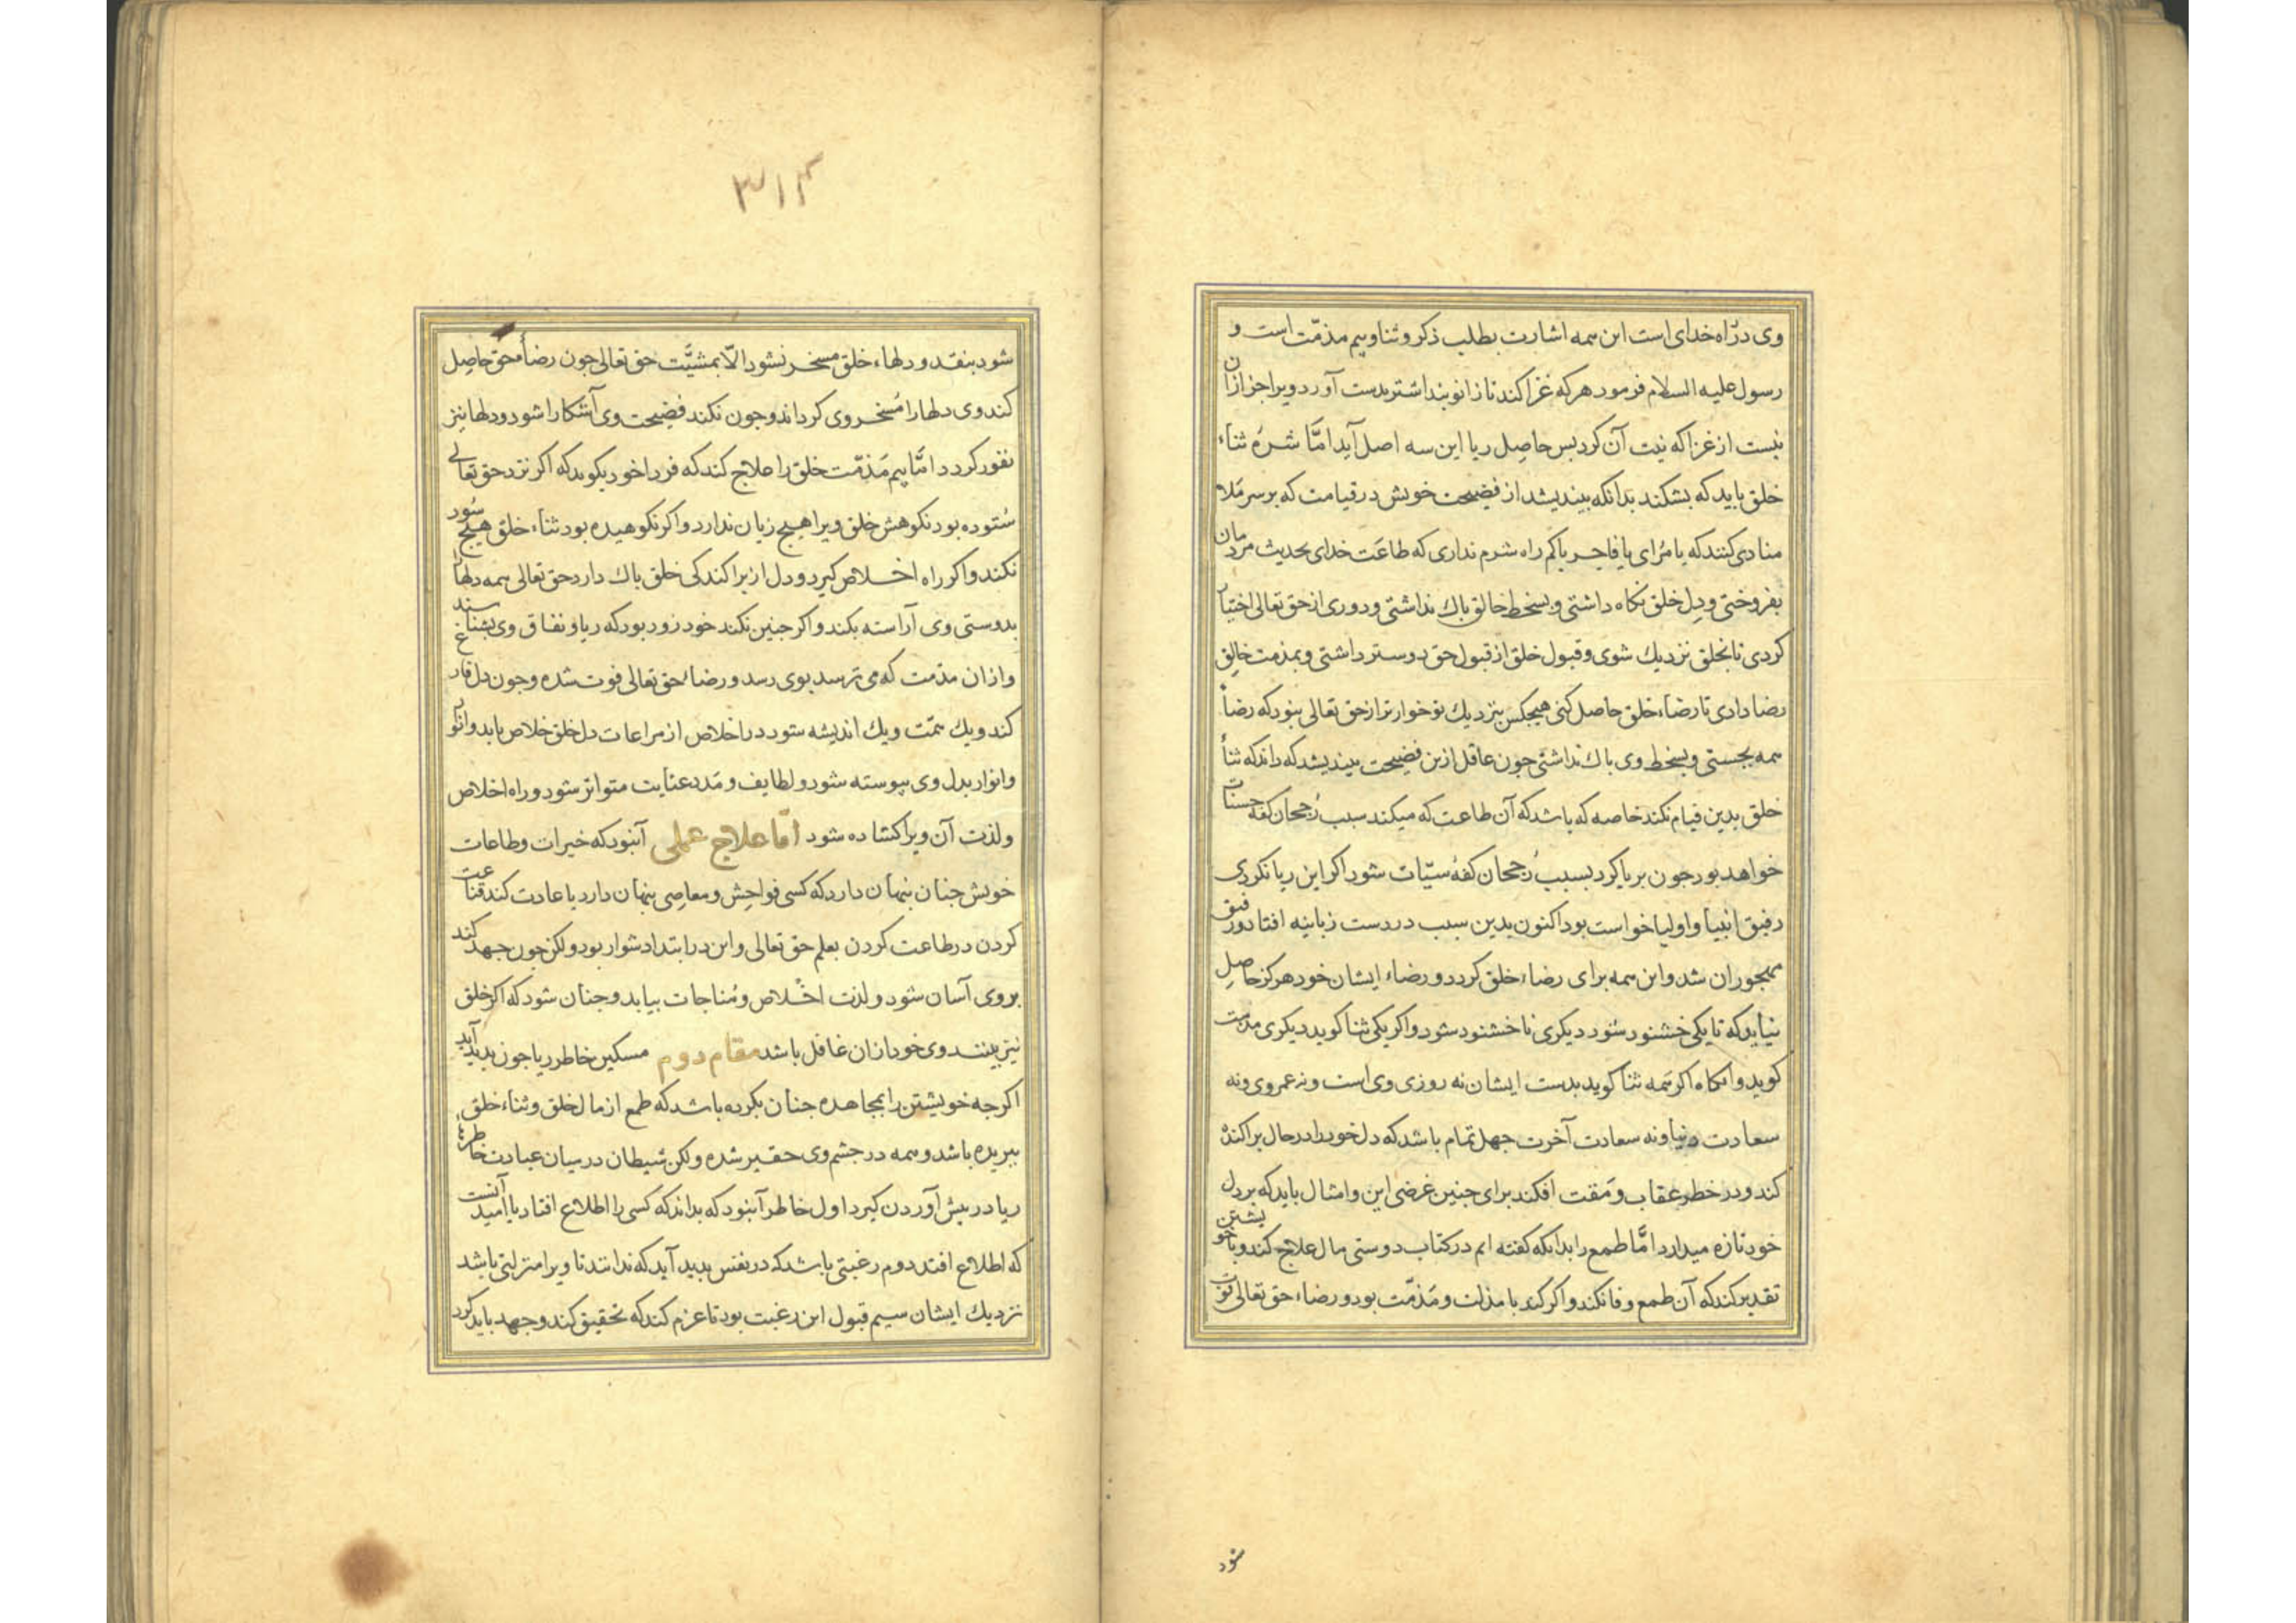 وی در راه خدای است این همه اشارت بطلب ذکر و ثنا و بیم مذمّت است و
رسول علیه السلام فرمود هر که غزا کند تا زانو بند اشتر بدست آورد ویرا جز از آن
نیست از غزا که نیت آن کرد بس حاصِل ریا این سه اصل آید امّا شرهٔ ثناء
خلق باید که بشکند بدانکه بیندیشد از فضیحت خویش در قیامت که بر سر مَلاء
منادی کنند که یا مُرای یا فاجر یا کم راه شرم نداری که طاعَت خدای بحدیث مردمان
بفروختی و دِل خلق نکاه داشتی و بسخط خالق باك نداشتی و دوری از حق تعالی اختیار
کردی تا بخلق نزدیك شوی و قبول خلق از قبول حق دوستر داشتی و بمذمت خالِق
رضا دادی تا رضاء خلق حاصل کنی هیجکس بنزدیك تو خوارتر از حق تعالی نبود که رضأ
همه بجستی و بسخط وی باك نداشتی جون عاقل ازین فضیحت بیندیشد که داند که ثنأ
خلق بدین قیام نکند خاصه که باشد که آن طاعت که میکند سبب رُجحان کفهٔ حسنات
خواهد بود جون بریا کرد بسبب رُجحان کفهٔ سیّات شود اکر این ریا نکردی
رفیق انبیأ و اولیا خواست بود اکنون بدین سبب در دست زبانیه افتاد و رفیق
مهجوران شد و این همه برای رضاء خلق کرد و رضاء ایشان خود هرکز حاصِل
نیاید که تا یکی خشنود شود دیکری ناخشنود شود و اکر یکی ثنا کوید دیکری مذمت
کوید و انکاه اکر همه ثنا کوید بدست ایشان نه روزی وی است و نه عمر وی و نه
سعادت دنیا و نه سعادت آخرت جهل تمام باشد که دل خود را در حال براکنده
کند و در خطر عِقاب و مَقت افکند برای جنین غرضی این و امثال باید که بر دل
خود تازه میدارد امّا طمع را بدانکه کفته ایم در کتاب دوستی مال علاج کند و با خویشتن
تقدیر کند که آن طمع وفا نکند و اکر کند با مذلت و مَذمّت بود و رضاء حق تعالی فوت
شود
۳۱۴
شود بنقد و دلهاء خلق مسخر نشود الّا بمشیَّت حق تعالی جون رضأ حق حاصِل
کند وی دلها را مُسخر وی کرداند و جون نکند فضیحت وی آشکارا شود و دلها نیز
نفور کردد امّا بیم مَذمّت خلق را علاج کند که فرا خود بکوید که اکر نزد حق تعالی
سُتوده بود نکوهش خلق ویرا هیج زیان ندارد و اکر نکوهیده بود ثناء خلق هیچ سُود
نکند و اکر راه اخلاص کیرد و دل از براکندکی خلق باك دارد حق تعالی همه دلها را
بدوستی وی آراسته بکند و اکر جنین نکند خود زود بود که ریا و نفاق وی بشناسند
و ازان مذمت که می ترسد بوی رسد و رضاء حق تعالی فوت شده و جون دل فارغ
کند و یك همّت و یك اندیشه شود در اخلاص از مراعات دل خلق خلاص یابد و انوار
و انوار بدل وی بیوسته شود و لطایف و مَدد عنایت متواتر شود و راه اخلاص
و لذت آن ویرا کشاده شود امّا علاج عملی آنبود که خیرات و طاعات
خویش جنان بنهان دارد که کسی فواحِش و معاصی بنهان دارد با عادت کند قناعت
کردن در طاعت کردن بعلم حق تعالی و این در ابتدا دشوار بود و لکن جون جهد کند
بر وی آسان شود و لذت اخْلاص و مُناجات بیابد و جنان شود که اکر خلق
نیز بینند وی خود ازان غافل باشد مقام دوم مسکین خاطر ریا جون بدید آید
اکرجه خویشتن را بمجاهده جنان بکرده باشد که طمع از مال خلق و ثناء خلق
ببریده باشد و همه در جشم وی حقیر شده و لکن شیطان در میان عبادت خاطرهاء
ریا در بیش آوردن کیرد اول خاطر آنبود که بداند که کسی را اطلاع افتاد یا امید آنست
که اطلاع افتد دوم رغبتی باشد که در نفس بدید آید که ندانند تا ویرا منزلتی باشد
نزدیك ایشان سیم قبول این رغبت بود تا عزم کند که تحقیق کند و جهد باید کرد